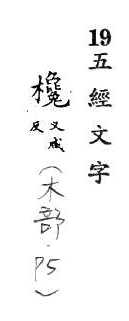 19五經文字
欃叉咸反(木部.P5)